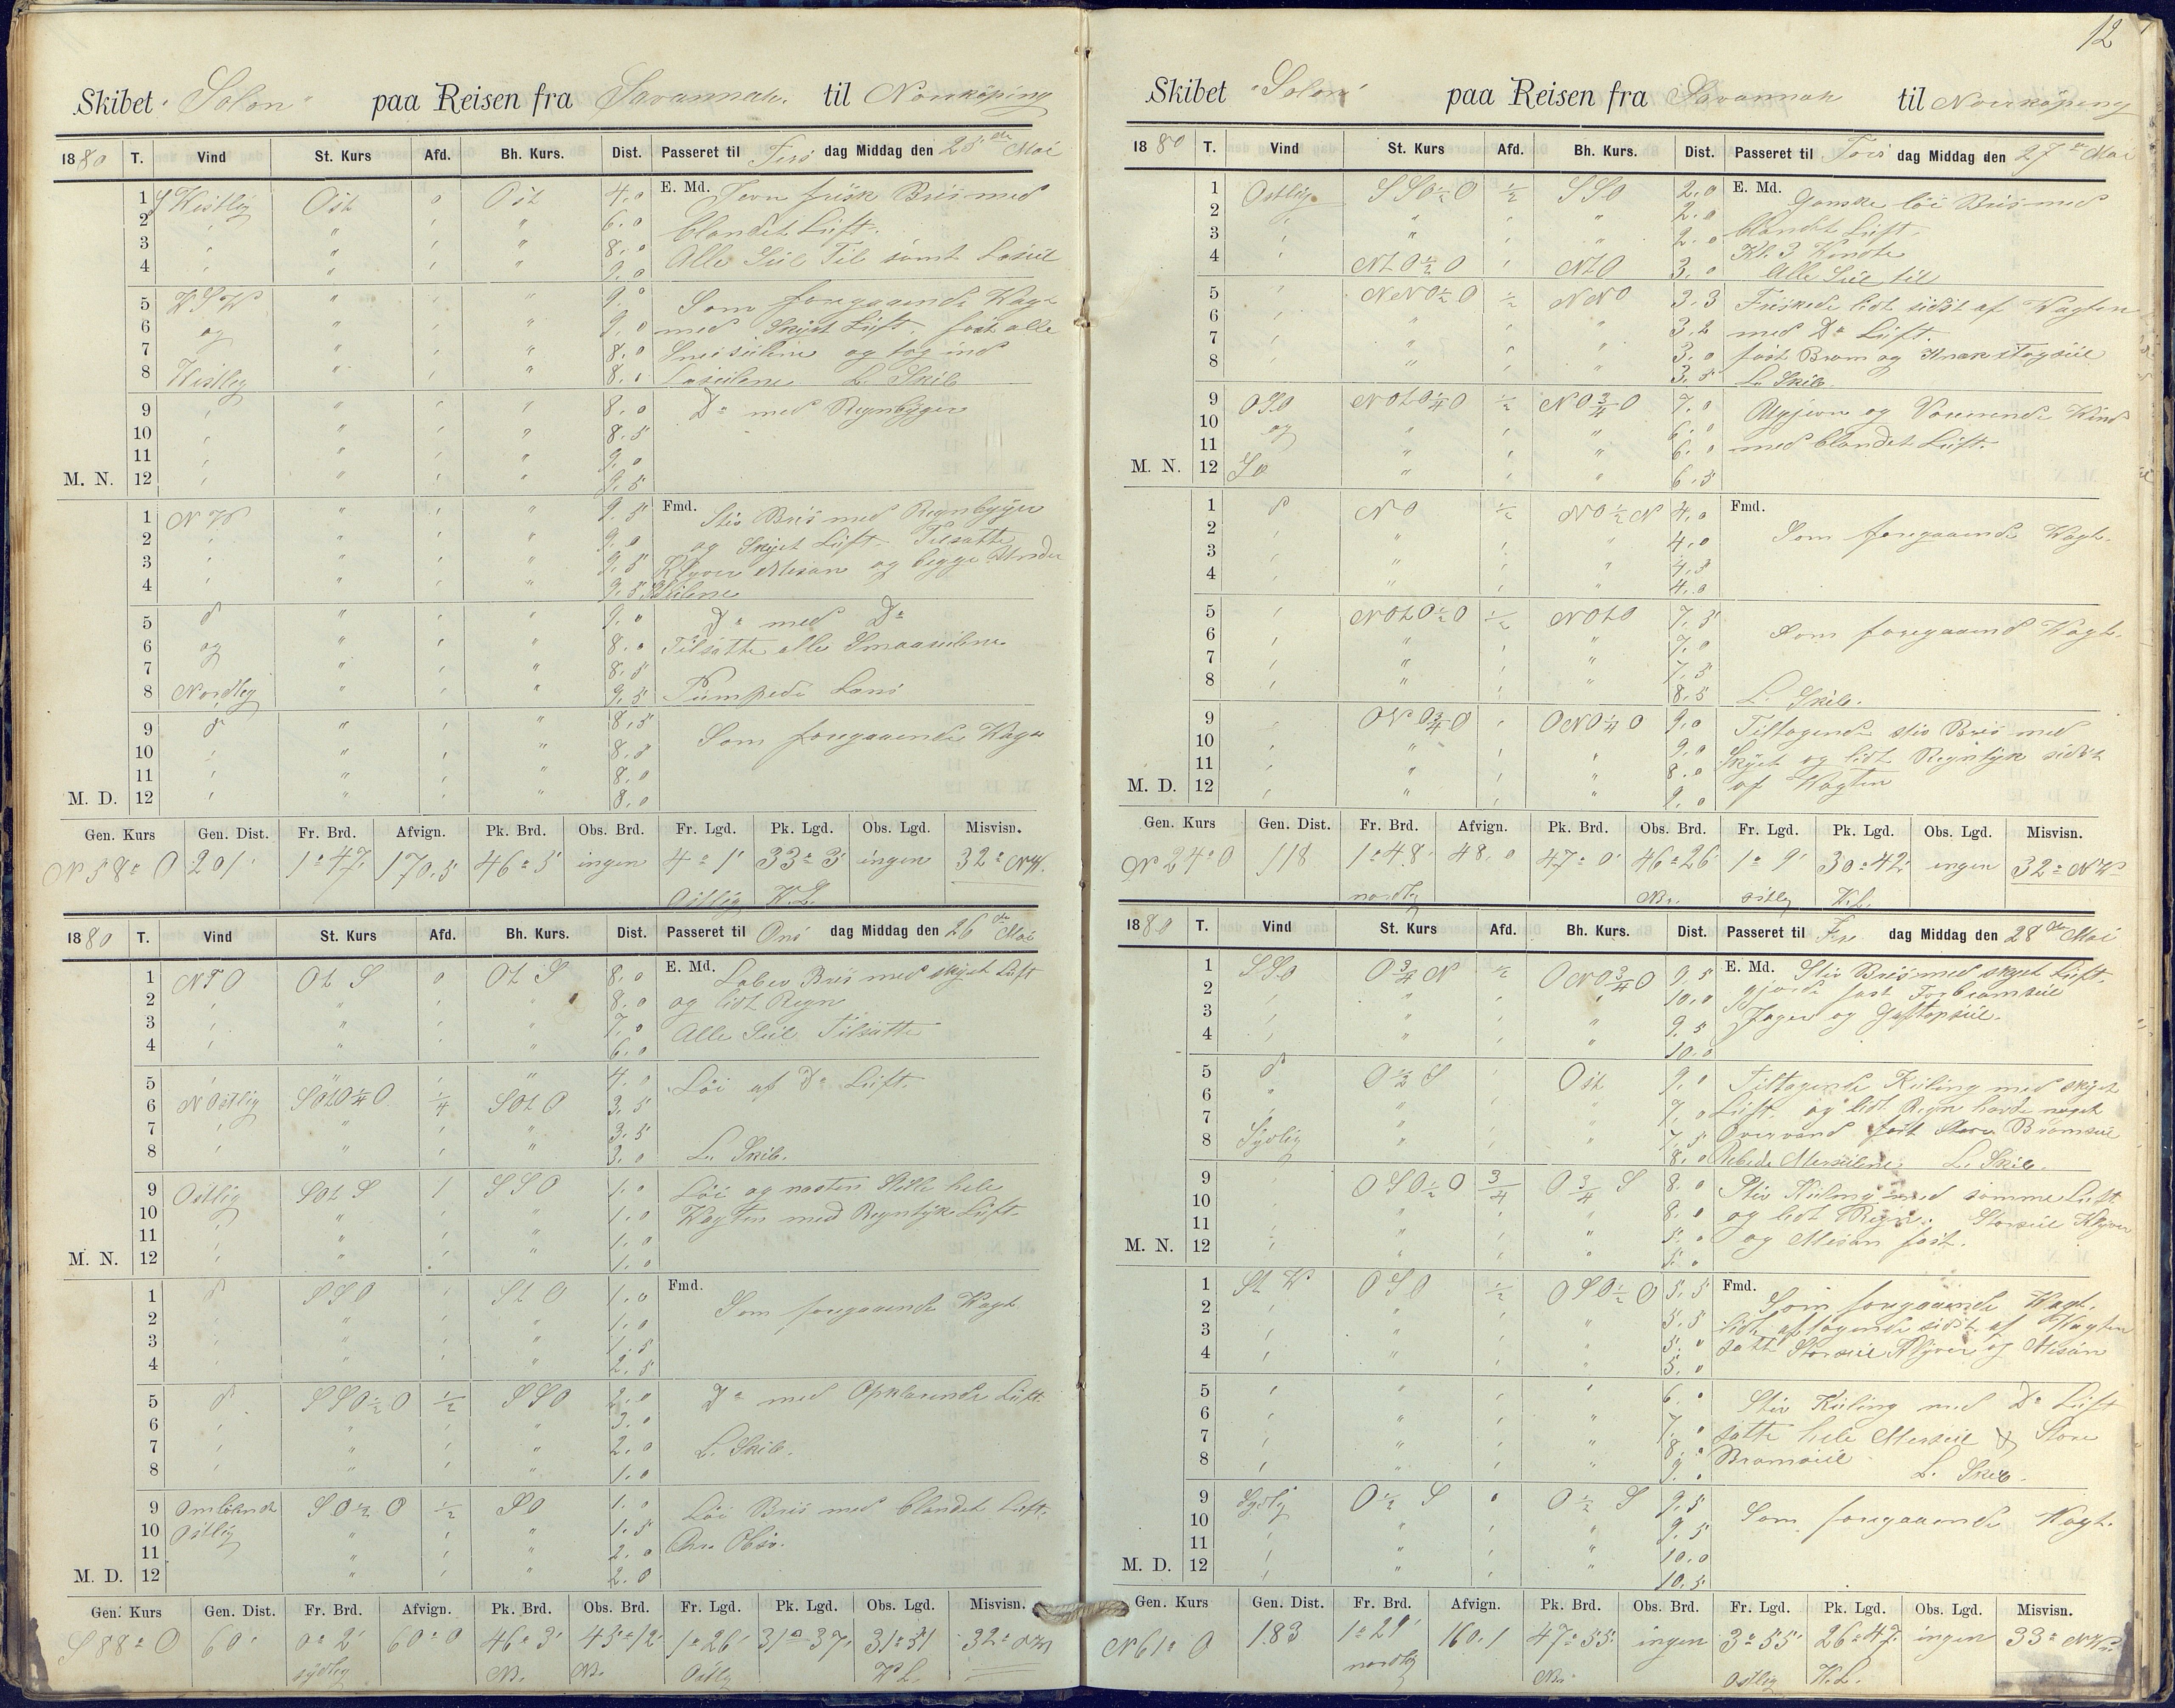 Skibet "Solon" paa Reisen fra Savannah. til Norrköping
1880 T. Vind St. Kurs Afd. Bh. Kurs. Dist. Passeret til Tirs dag Middag den 25de Mai
1 S Westlig Ost 0 Ost 4,0 E. Md. Jevn frisk Bris med
2 " " " " 6,0 blandet Luft.
3 " " " " 8,0 Alle Seil Til samt Læseil
4 " " " " 9,0
5 WSW " " " 9,0 Som foregaaende Vagt
6 og " " " 9,0 med Skyet Luft. fast alle
7 " " " 8,0 Smaseilene og tog ind
8 Westlig " " " 8,0 Læseilene L. Skib
9 " " " " 8,0 Do med Regnbyger
10 " " " " 8,5
11 " " " " 9,0
M. N. 12 " " " " 9,5
1 NW " " " 9,5 Fmd. Stiv Bris med Regnbyger
2 " " " " 9,0 og Skyet Luft. Tilsatte
3 " " " " 9,5 Klyver Mesan og begge Under
4 " " " " 9,5 Seilene
5 " " " 9,0 Do med Do
6 og " " " 8,0 Tilsatte alle Smaaseilene
7 " " " 8,5
8 Nordlig " " " 9,5 Pumpede Læns
9 " " " 8,5 Som foregaaende Vagt
10 " " " " 8,5
11 " " " " 8,0
M. D. 12 " " " " 8,0
Gen. Kurs Gen. Dist. Fr. Brd. Afvign. Pk. Brd. Obs. Brd. Fr. Lgd. Pk. Lgd. Obs. Lgd. Misvisn.
N 58° O 201' 1° 47' 170,5 46° 5' ingen 4° 1' 33° 3' ingen 32° NW.
Ostlig W.L.
1880 T. Vind St. Kurs Afd. Bh. Kurs. Dist. Passeret til Ons dag Middag den 26de Mai
1 NTO Ot S 0 Ot S 8,0 E. Md. Laber Bris med skyet Luft
2 " " " " 8,0 og lidt Regn
3 " " " " 7,0 Alle Seil Tilsatte
4 " " " " 6,0
5 " " " " 4,0 Løi af Do Luft.
6 N Ostlig SOtO¼O ¼ SOt O 3,5
7 " " " " 3,5
8 " " " " 3,0 L. Skib.
9 Ostlig SOt S 1 SSO 1,0 Löi og næsten Stille hele
10 " " " " 1,0 Vagten med Regntyk Luft
11 " " " " 1,0
M. N. 12 " " " " 1,0
1 SSO " St O 1,0 Fmd.
2 " " " " 1,0 Som foregaaende Vagt
3 " " " " 1,5
4 " " " " 2,5
5 SSO½O ½ SSO 2,0 Do med Opklarende Luft.
6 " " " " 3,0
7 " " " " 2,0 L. Skib.
8 " " " " 1,0
9 Omløbende SO½O ½ SO 1,0 Löi Bris med blandet Luft.
10 Ostlig " " " 1,5
11 " " " 2,0 Obsv.
M. D. 12 " " " 2,0
Gen. Kurs Gen. Dist. Fr. Brd. Afvign. Pk. Brd. Obs. Brd. Fr. Lgd. Pk. Lgd. Obs. Lgd. Misvisn.
S 88° O 60' 0° 2' 60° 0 46° 3' 45° 12' 1° 26' 31° 37' 31° 51 32° NW
sydlig N. N. Ostlig W L.
12
Skibet "Solon" paa Reisen fra Savannah til Norrköping
1880 T. Vind St. Kurs Afd. Bh. Kurs. Dist. Passeret til Tors dag Middag den 27de Mai
1 Ostlig SSO½O ½ SSO 2,0 E. Md. Ganske löi Bris med
2 " " " " 2,0 blandet Luft.
3 " " " " 2,0 Kl. 3 Vendte
4 " NtO½O " NtO 3,0 Alle Seil til
5 " NNO½O ½ NNO 3,3 Friskede lidt sidst af Vagten
6 " " " " 3,2 med Do Luft.
7 " " " " 3,0 fast Bram og Stagseil
8 " " " " 3,5 L. Skib.
9 OSO NOtO¼O ½ NO¾O 7,0 Ujevn og Voxende Vind
10 og " " " 6,0 med blandet Luft.
11 " " " 6,0
M. N. 12 SO " " " 6,5
1 NO ½ NO½N 4,0 Fmd.
2 " " " " 4,0 Som foregaaende Vagt.
3 " " " " 4,5
4 " " " " 4,0
5 " NOtO½O ½ NOtO 7,5 Som foregaaend Vagt.
6 " " " " 7,0
7 " " " " 7,5
8 " " " " 8,5 L. Skib.
9 " ONO¾O " ONO¼O 9,0 Tiltagende stiv Bris med
10 " " " " 9,0 Skyet og lidt Regntyk sidst
11 " " " " 8,0 af Vagten
M. D. 12 " " " " 9,0
Gen. Kurs Gen. Dist. Fr. Brd. Afvign. Pk. Brd. Obs. Brd. Fr. Lgd. Pk. Lgd. Obs. Lgd. Misvisn.
N 24° O 118 1° 48' 48,0 47° 0' 46° 26' 1° 9' 30° 42' ingen 32° NW
nordlig N. ostlig W.L.
1880 T. Vind St. Kurs Afd. Bh. Kurs. Dist. Passeret til Fre dag Middag den 28de Mai
1 SSO O¾N ½ ONO¾O 9,5 E. Md. Stiv Bris med skyet Luft.
2 " " " " 10,0 gjorde fast Forbramseil
3 " " " " 9,5 Jager og Gaftopseil.
4 " " " " 10,0
5 O½S " Ost 9,0 Tiltagende Kuling med skyet
6 " " " " 7,0 Luft og lidt Regn havde noget
7 " " " " 7,5 Overvand fast Store Bramseil
8 Sydlig " " " 8,0 Rebede Merseilene L. Skib.
9 " OSO½O ¾ O¾S 8,0 Stiv Kuling med samme Luft
10 " " " " 8,0 og lidt Regn. Storseil Klyver
11 " " " " 5,0 og Mesan fast.
M. N. 12 " " " " 5,0
1 St W OSO ½ OSO½O 5,5 Fmd. Som foregaaende Vagt.
2 " " " " 5,5 lidt aftagende sidst af Vagten
3 " " " " 5,0 satte Storseil Klyver og Mesan
4 " " " " 5,0
5 " " " 6,0 Stiv Kuling med Do Luft
6 " " " " 7,0 satte hele Merseil & Store
7 " " " " 8,0 Bramseil
8 " " " " 9,0 L. Skib.
9 Sydlig O½ S 0 O½ S 9,5 Som foregaaende Vagt.
10 " " " " 9,5
11 " " " " 10,0
M. D. 12 " " " " 10,5
Gen. Kurs Gen. Dist. Fr. Brd. Afvign. Pk. Brd. Obs. Brd. Fr. Lgd. Pk. Lgd. Obs. Lgd. Misvisn.
N 61° O 183 1° 29' 160,1 47° 55' ingen 3° 55' 26° 47' ingen 33° NW.
nordlig N. Ostlig W.L.